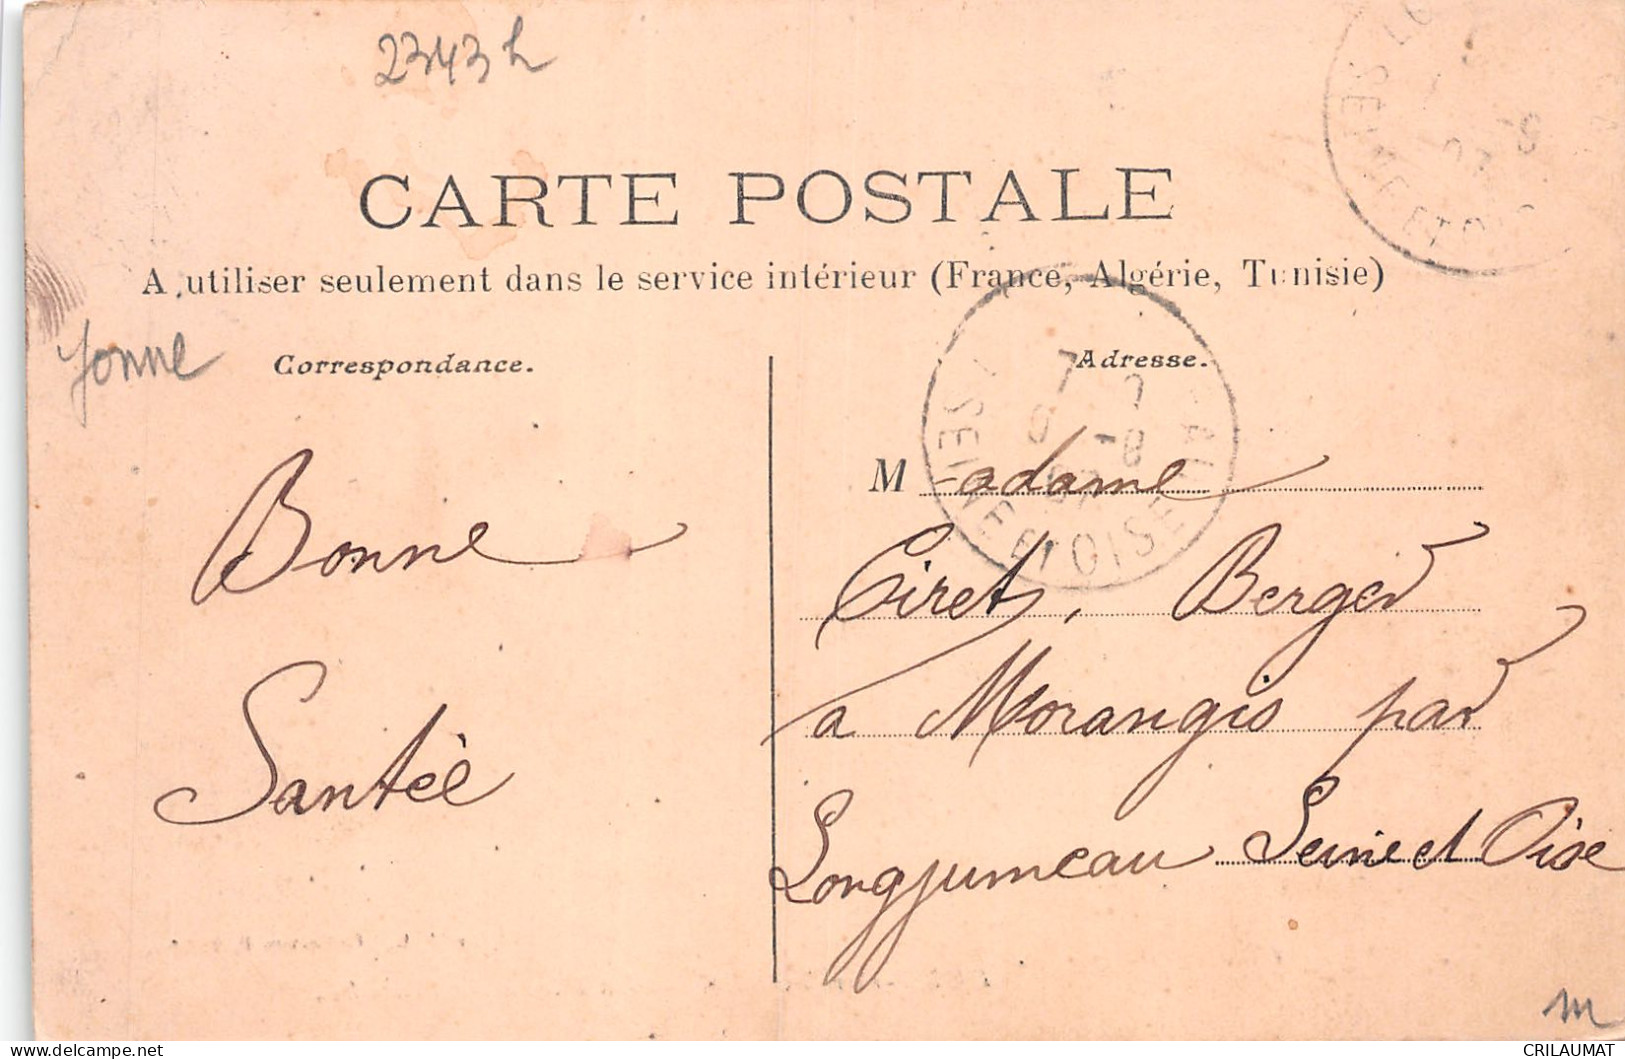 2343 h
CARTE POSTALE
A utiliser seulement dans le service intérieur (France, Algérie, Tunisie)
Yonne
Correspondance.
Adresse.
Bonne
Santée
Madame
Ciret, Berger
a Morangis par
Longjumeau Seine et Oise
SEINE ET OISE
7 7
-8
07
SEINE ET OISE
m
CRILAUMAT